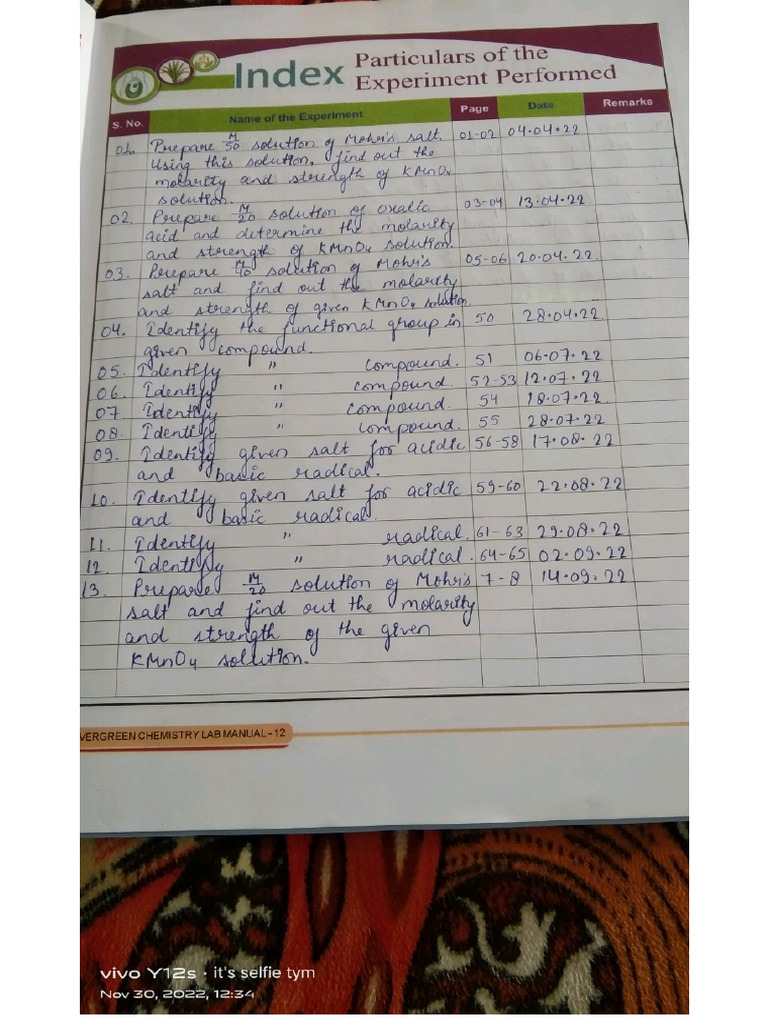 Index Particulars of the
Experiment Performed
S. No. Name of the Experiment Page Date Remarks
01. Prepare M/50 solution of Mohr's salt. 01-02 04.04.22
Using this solution, find out the
molarity and strength of KMnO4
solution.
02. Prepare M/20 solution of oxalic 03-04 13.04.22
acid and determine the molarity
and strength of KMnO4 solution.
03. Prepare M/40 solution of Mohr's 05-06 20.04.22
salt and find out the molarity
and strength of given KMnO4 solution
04. Identify the functional group in 50 28.04.22
given compound.
05. Identify " compound. 51 06.07.22
06. Identify " compound. 52-53 12.07.22
07. Identify " compound. 54 18.07.22
08. Identify " compound. 55 28.07.22
09. Identify given salt for acidic 56-58 17.08.22
and basic radical.
10. Identify given salt for acidic 59-60 22.08.22
and basic radical.
11. Identify " radical. 61-63 29.08.22
12 Identify " radical. 64-65 02.09.22
13. Prepare M/20 solution of Mohr's 7-8 14.09.22
salt and find out the molarity
and strength of the given
KMnO4 solution.
VERGREEN CHEMISTRY LAB MANUAL-12
vivo Y12s · it's selfie tym
Nov 30, 2022, 12:34